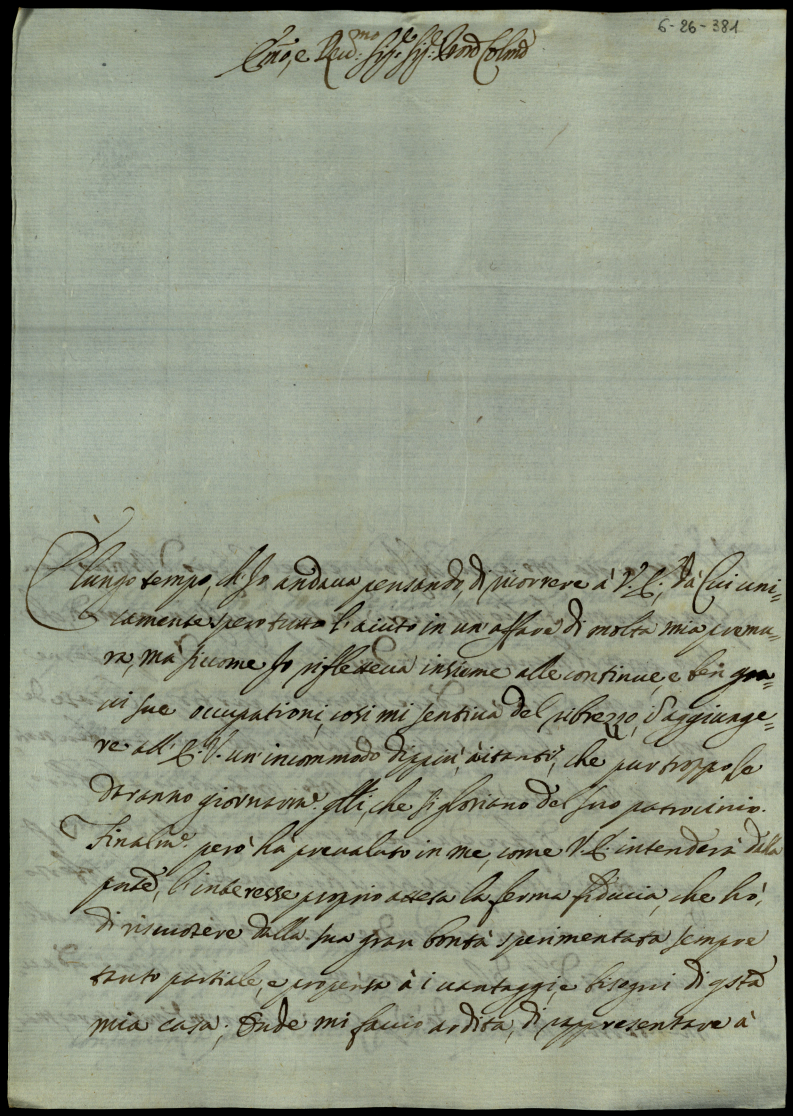 6-26-381
Emo, e Revd:mo Sigr: Sigr: Prone Colmo
È lungo tempo, ch'Io andava pensando, di ricorrere à V.E., da Cui uni=
camente spero tutto l'aiuto in un'affare di molta mia premu=
ra, mà siccome Io rifletteva insieme alle continue, e ben gra=
vi sue occupationi, così mi sentiva del ribrezzo, d'aggiunge=
re all'E.V. un'incommodo dippiù, à i tanti, che pur troppo le
daranno giornarme. qlli, che si gloriano del suo patrocinio.
Finalme. però hà prevaluto in me, come V.E. intenderà dalla
pnte, l'interesse proprio attesa la ferma fiducia, che hò,
di riscuotere dalla sua gran bontà sperimentata sempre
tanto partiale, e propensa à i vantaggi, e bisogni di qsta
mia casa; Onde mi faccio ardita, di rappresentare à